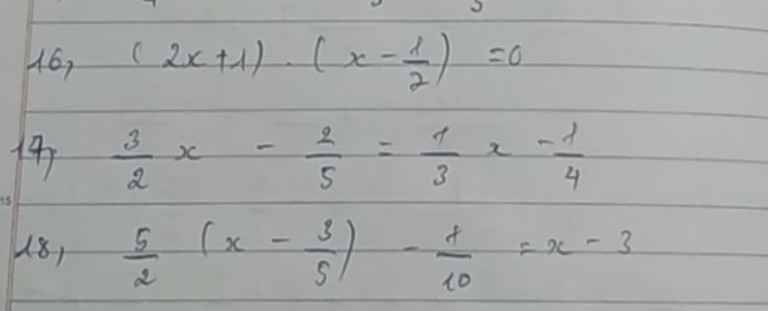 16, (2x+1) . (x - 1/2) = 0
17, 3/2 x - 2/5 = 1/3 x - 1/4
18, 5/2 (x - 3/5) - 1/10 = x - 3